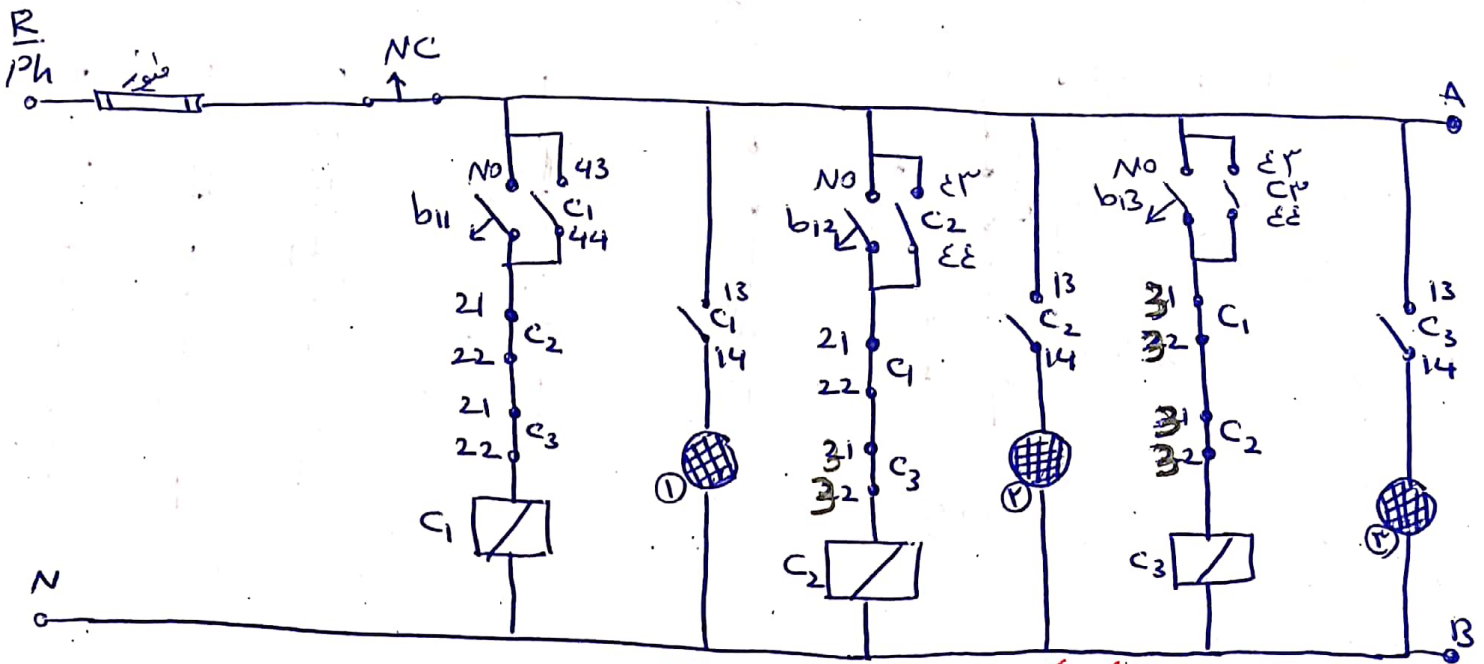 R
Ph
فيوز
NC
A
NO
43
b11
C1
44
21
C2
22
21
C3
22
C1
13
C1
14
①
NO
٤٣
b12
C2
٤٤
21
C1
22
31
C3
32
C2
13
C2
14
②
NO
٤٣
b13
C٣
٤٤
31
C1
32
31
C2
32
C3
13
C3
14
③
N
B